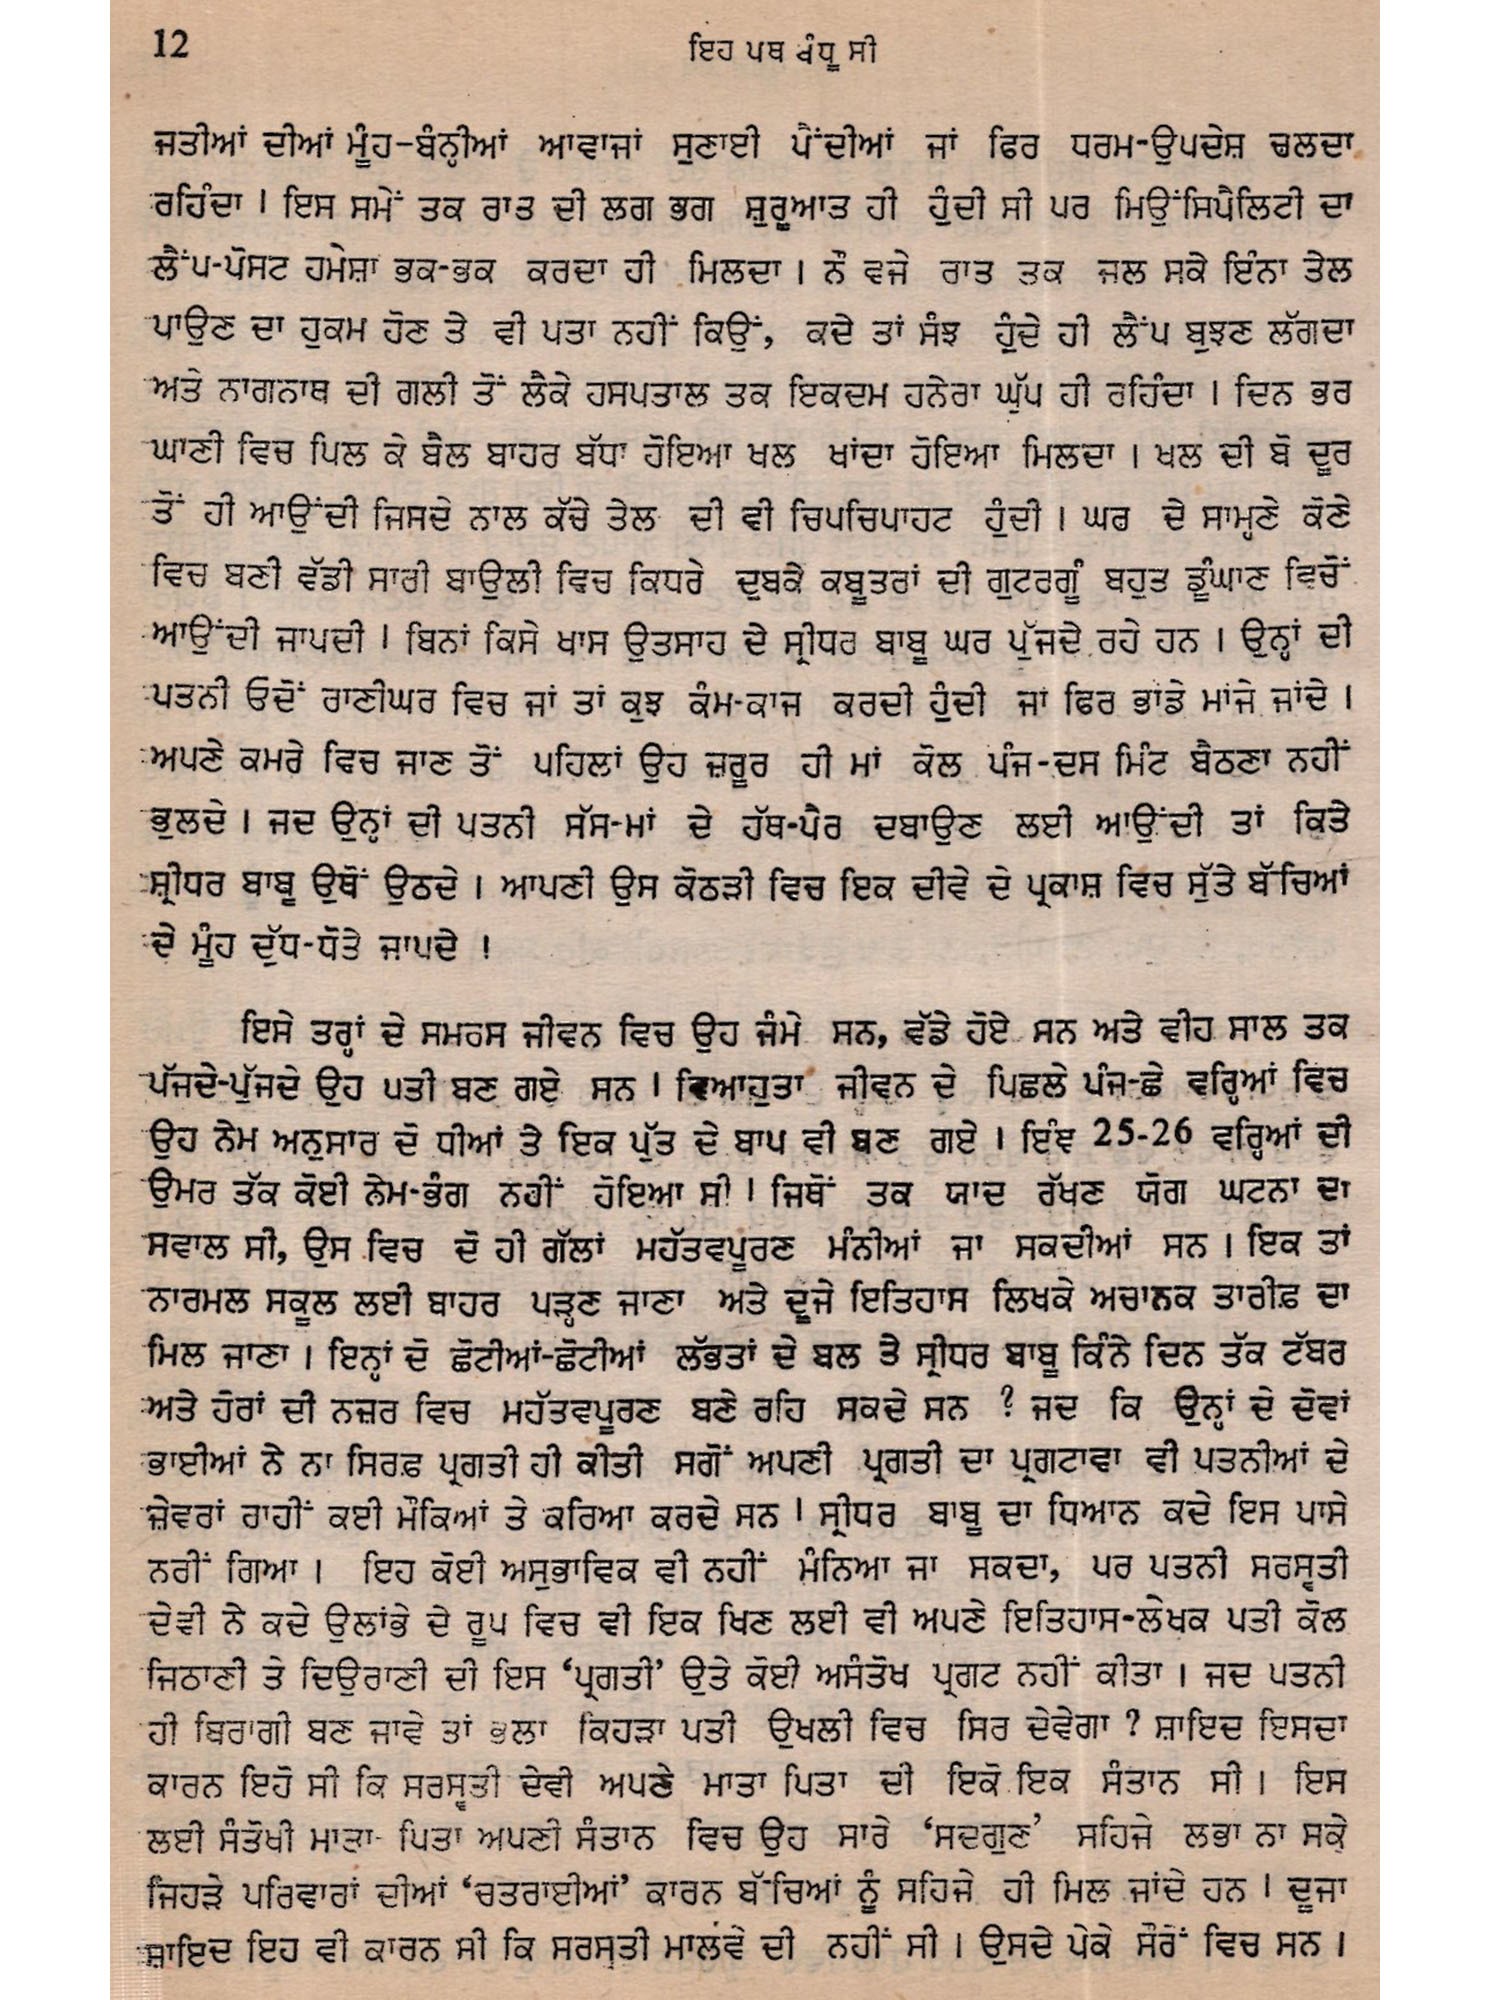 12
ਇਹ ਪਥ ਬੰਧੂ ਸੀ
ਜਤੀਆਂ ਦੀਆਂ ਮੂੰਹ-ਬੰਨ੍ਹੀਆਂ ਆਵਾਜਾਂ ਸੁਣਾਈ ਪੈਂਦੀਆਂ ਜਾਂ ਫਿਰ ਧਰਮ-ਉਪਦੇਸ਼ ਚਲਦਾ
ਰਹਿੰਦਾ । ਇਸ ਸਮੇਂ ਤਕ ਰਾਤ ਦੀ ਲਗ ਭਗ ਸ਼ੁਰੂਆਤ ਹੀ ਹੁੰਦੀ ਸੀ ਪਰ ਮਿਉਂਸਿਪੈਲਿਟੀ ਦਾ
ਲੈਂਪ-ਪੋਸਟ ਹਮੇਸ਼ਾ ਭਕ-ਭਕ ਕਰਦਾ ਹੀ ਮਿਲਦਾ । ਨੌ ਵਜੇ ਰਾਤ ਤਕ ਜਲ ਸਕੇ ਇੰਨਾ ਤੇਲ
ਪਾਉਣ ਦਾ ਹੁਕਮ ਹੋਣ ਤੇ ਵੀ ਪਤਾ ਨਹੀਂ ਕਿਉਂ, ਕਦੇ ਤਾਂ ਸੰਝ ਹੁੰਦੇ ਹੀ ਲੈਂਪ ਬੁਝਣ ਲੱਗਦਾ
ਅਤੇ ਨਾਗਨਾਥ ਦੀ ਗਲੀ ਤੋਂ ਲੈਕੇ ਹਸਪਤਾਲ ਤਕ ਇਕਦਮ ਹਨੇਰਾ ਘੁੱਪ ਹੀ ਰਹਿੰਦਾ । ਦਿਨ ਭਰ
ਘਾਣੀ ਵਿਚ ਪਿਲ ਕੇ ਬੈਲ ਬਾਹਰ ਬੱਧਾ ਹੋਇਆ ਖਲ ਖਾਂਦਾ ਹੋਇਆ ਮਿਲਦਾ । ਖਲ ਦੀ ਬੋ ਦੂਰ
ਤੋਂ ਹੀ ਆਉਂਦੀ ਜਿਸਦੇ ਨਾਲ ਕੱਚੇ ਤੇਲ ਦੀ ਵੀ ਚਿਪਚਿਪਾਹਟ ਹੁੰਦੀ । ਘਰ ਦੇ ਸਾਮ੍ਹਣੇ ਕੋਣੇ
ਵਿਚ ਬਣੀ ਵੱਡੀ ਸਾਰੀ ਬਾਉਲੀ ਵਿਚ ਕਿਧਰੇ ਦੁਬਕੇ ਕਬੂਤਰਾਂ ਦੀ ਗੁਟਰਗੂੰ ਬਹੁਤ ਡੂੰਘਾਣ ਵਿਚੋਂ
ਆਉਂਦੀ ਜਾਪਦੀ । ਬਿਨਾਂ ਕਿਸੇ ਖਾਸ ਉਤਸਾਹ ਦੇ ਸ੍ਰੀਧਰ ਬਾਬੂ ਘਰ ਪੁੱਜਦੇ ਰਹੇ ਹਨ । ਉਨ੍ਹਾਂ ਦੀ
ਪਤਨੀ ਓਦੋਂ ਰਾਣੀਘਰ ਵਿਚ ਜਾਂ ਤਾਂ ਕੁਝ ਕੰਮ-ਕਾਜ ਕਰਦੀ ਹੁੰਦੀ ਜਾਂ ਫਿਰ ਭਾਂਡੇ ਮਾਂਜੇ ਜਾਂਦੇ ।
ਅਪਣੇ ਕਮਰੇ ਵਿਚ ਜਾਣ ਤੋਂ ਪਹਿਲਾਂ ਉਹ ਜ਼ਰੂਰ ਹੀ ਮਾਂ ਕੋਲ ਪੰਜ-ਦਸ ਮਿੰਟ ਬੈਠਣਾ ਨਹੀਂ
ਭੁਲਦੇ । ਜਦ ਉਨ੍ਹਾਂ ਦੀ ਪਤਨੀ ਸੱਸ-ਮਾਂ ਦੇ ਹੱਥ-ਪੈਰ ਦਬਾਉਣ ਲਈ ਆਉਂਦੀ ਤਾਂ ਕਿਤੇ
ਸ਼੍ਰੀਧਰ ਬਾਬੂ ਉਥੋਂ ਉਠਦੇ । ਆਪਣੀ ਉਸ ਕੋਠੜੀ ਵਿਚ ਇਕ ਦੀਵੇ ਦੇ ਪ੍ਰਕਾਸ਼ ਵਿਚ ਸੁੱਤੇ ਬੱਚਿਆਂ
ਦੇ ਮੂੰਹ ਦੁੱਧ-ਧੋਤੇ ਜਾਪਦੇ ।
ਇਸੇ ਤਰ੍ਹਾਂ ਦੇ ਸਮਰਸ ਜੀਵਨ ਵਿਚ ਉਹ ਜੰਮੇ ਸਨ, ਵੱਡੇ ਹੋਏ ਸਨ ਅਤੇ ਵੀਹ ਸਾਲ ਤਕ
ਪੱਜਦੇ-ਪੁੱਜਦੇ ਉਹ ਪਤੀ ਬਣ ਗਏ ਸਨ । ਵਿਆਹੁਤਾ ਜੀਵਨ ਦੇ ਪਿਛਲੇ ਪੰਜ-ਛੇ ਵਰ੍ਹਿਆਂ ਵਿਚ
ਉਹ ਨੇਮ ਅਨੁਸਾਰ ਦੋ ਧੀਆਂ ਤੇ ਇਕ ਪੁੱਤ ਦੇ ਬਾਪ ਵੀ ਬਣ ਗਏ । ਇੰਞ 25-26 ਵਰ੍ਹਿਆਂ ਦੀ
ਉਮਰ ਤੱਕ ਕੋਈ ਨੇਮ-ਭੰਗ ਨਹੀਂ ਹੋਇਆ ਸੀ । ਜਿਥੋਂ ਤਕ ਯਾਦ ਰੱਖਣ ਯੋਗ ਘਟਨਾ ਦਾ
ਸਵਾਲ ਸੀ, ਉਸ ਵਿਚ ਦੋ ਹੀ ਗੱਲਾਂ ਮਹੱਤਵਪੂਰਣ ਮੰਨੀਆਂ ਜਾ ਸਕਦੀਆਂ ਸਨ । ਇਕ ਤਾਂ
ਨਾਰਮਲ ਸਕੂਲ ਲਈ ਬਾਹਰ ਪੜ੍ਹਣ ਜਾਣਾ ਅਤੇ ਦੂਜੇ ਇਤਿਹਾਸ ਲਿਖਕੇ ਅਚਾਨਕ ਤਾਰੀਫ਼ ਦਾ
ਮਿਲ ਜਾਣਾ । ਇਨ੍ਹਾਂ ਦੋ ਛੋਟੀਆਂ-ਛੋਟੀਆਂ ਲੱਭਤਾਂ ਦੇ ਬਲ ਤੇ ਸ੍ਰੀਧਰ ਬਾਬੂ ਕਿੰਨੇ ਦਿਨ ਤੱਕ ਟੱਬਰ
ਅਤੇ ਹੋਰਾਂ ਦੀ ਨਜ਼ਰ ਵਿਚ ਮਹੱਤਵਪੂਰਣ ਬਣੇ ਰਹਿ ਸਕਦੇ ਸਨ ? ਜਦ ਕਿ ਉਨ੍ਹਾਂ ਦੇ ਦੋਵਾਂ
ਭਾਈਆਂ ਨੇ ਨਾ ਸਿਰਫ਼ ਪ੍ਰਗਤੀ ਹੀ ਕੀਤੀ ਸਗੋਂ ਅਪਣੀ ਪ੍ਰਗਤੀ ਦਾ ਪ੍ਰਗਟਾਵਾ ਵੀ ਪਤਨੀਆਂ ਦੇ
ਜ਼ੇਵਰਾਂ ਰਾਹੀਂ ਕਈ ਮੌਕਿਆਂ ਤੇ ਕਰਿਆ ਕਰਦੇ ਸਨ । ਸ੍ਰੀਧਰ ਬਾਬੂ ਦਾ ਧਿਆਨ ਕਦੇ ਇਸ ਪਾਸੇ
ਨਰੀਂ ਗਿਆ । ਇਹ ਕੋਈ ਅਸੁਭਾਵਿਕ ਵੀ ਨਹੀਂ ਮੰਨਿਆ ਜਾ ਸਕਦਾ, ਪਰ ਪਤਨੀ ਸਰਸ੍ਵਤੀ
ਦੇਵੀ ਨੇ ਕਦੇ ਉਲਾਂਭੇ ਦੇ ਰੂਪ ਵਿਚ ਵੀ ਇਕ ਖਿਣ ਲਈ ਵੀ ਅਪਣੇ ਇਤਿਹਾਸ-ਲੇਖਕ ਪਤੀ ਕੋਲ
ਜਿਠਾਣੀ ਤੇ ਦਿਉਰਾਣੀ ਦੀ ਇਸ ‘ਪ੍ਰਗਤੀ’ ਉਤੇ ਕੋਈ ਅਸੰਤੋਖ ਪ੍ਰਗਟ ਨਹੀਂ ਕੀਤਾ । ਜਦ ਪਤਨੀ
ਹੀ ਬਿਰਾਗੀ ਬਣ ਜਾਵੇ ਤਾਂ ਭਲਾ ਕਿਹੜਾ ਪਤੀ ਉਖਲੀ ਵਿਚ ਸਿਰ ਦੇਵੇਗਾ ? ਸ਼ਾਇਦ ਇਸਦਾ
ਕਾਰਨ ਇਹੋ ਸੀ ਕਿ ਸਰਸ੍ਵਤੀ ਦੇਵੀ ਅਪਣੇ ਮਾਤਾ ਪਿਤਾ ਦੀ ਇਕੋ ਇਕ ਸੰਤਾਨ ਸੀ । ਇਸ
ਲਈ ਸੰਤੋਖੀ ਮਾਤਾ- ਪਿਤਾ ਅਪਣੀ ਸੰਤਾਨ ਵਿਚ ਉਹ ਸਾਰੇ ‘ਸਦਗੁਣ’ ਸਹਿਜੇ ਲਭਾ ਨਾ ਸਕੇ
ਜਿਹੜੇ ਪਰਿਵਾਰਾਂ ਦੀਆਂ ‘ਚਤਰਾਈਆਂ’ ਕਾਰਨ ਬੱਚਿਆਂ ਨੂੰ ਸਹਿਜੇ ਹੀ ਮਿਲ ਜਾਂਦੇ ਹਨ । ਦੂਜਾ
ਸ਼ਾਇਦ ਇਹ ਵੀ ਕਾਰਨ ਸੀ ਕਿ ਸਰਸ੍ਵਤੀ ਮਾਲਵੇ ਦੀ ਨਹੀਂ ਸੀ । ਉਸਦੇ ਪੇਕੇ ਸੌਰੋਂ ਵਿਚ ਸਨ ।